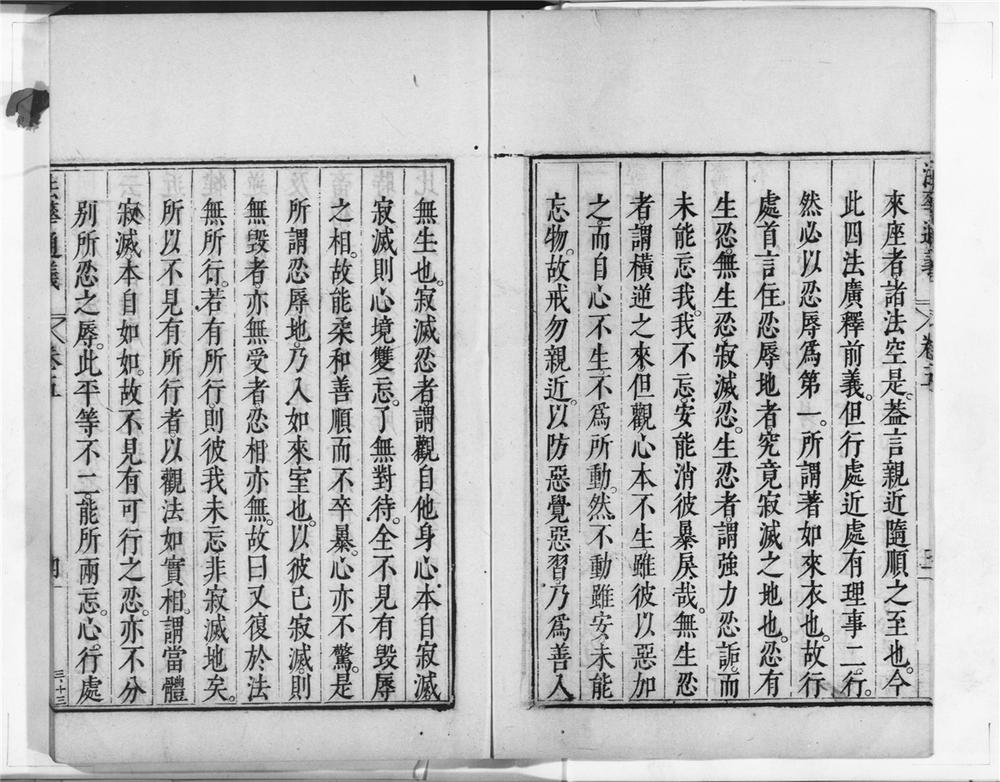 法華通義 卷五 三
來座者諸法空是。葢言親近隨順之至也。今
此四法廣釋前義。但行處近處有理事二行。
然必以忍辱爲第一。所謂著如來衣也。故行
處首言住忍辱地者究竟寂滅之地也。忍有
生忍無生忍寂滅忍。生忍者謂強力忍詬。而
未能忘我。我不忘安能消彼暴戾哉。無生忍
者謂橫逆之來但觀心本不生雖彼以惡加
之而自心不生不爲所動。然不動雖安未能
忘物。故戒勿親近。以防惡覺惡習乃爲善入
無生也。寂滅忍者謂觀自他身心本自寂滅
寂滅則心境雙忘。了無對待。全不見有毀辱
之相。故能柔和善順而不卒暴。心亦不驚。是
所謂忍辱地。乃入如來室也。以彼已寂滅則
無毀者亦無受者忍相亦無。故曰又復於法
無所行。若有所行則彼我未忘非寂滅地矣。
所以不見有所行者以觀法如實相。謂當體
寂滅本自如如。故不見有可行之忍。亦不分
別所忍之辱。此平等不二能所兩忘。心行處
法華通義 卷五 四
三·十三